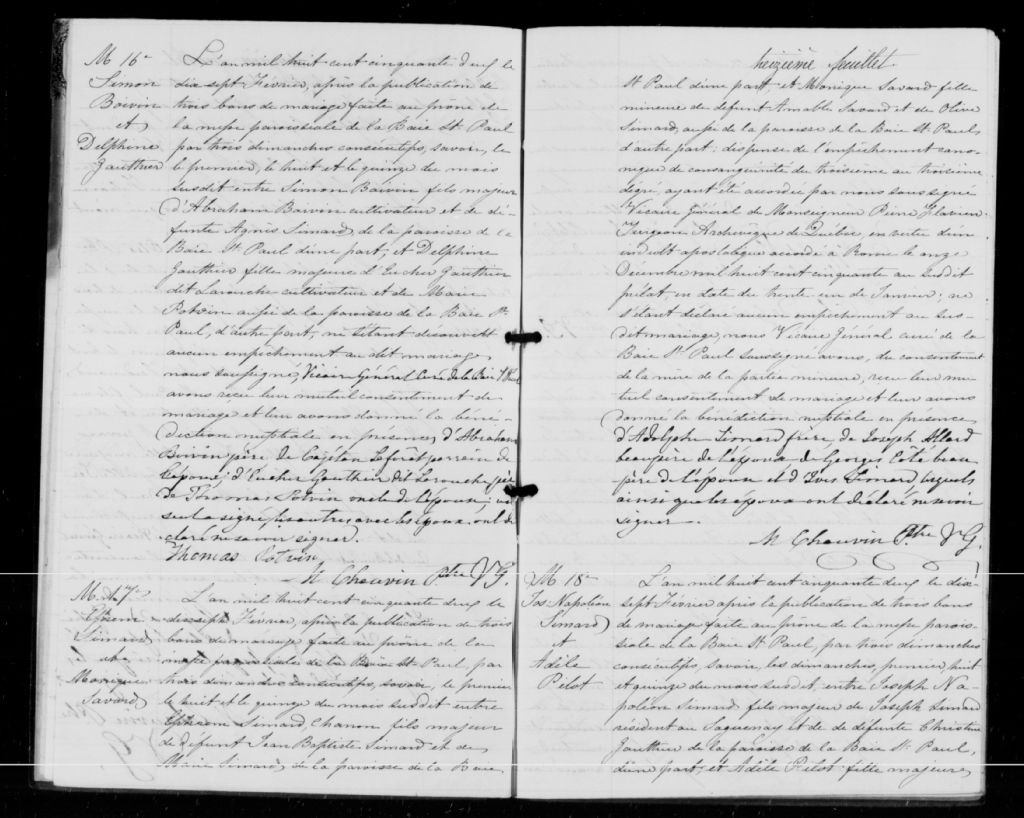 M 16e
Simon
Boivin
et
Delphine
Gauthier
L'an mil huit cent cinquante deux le
dix sept Février, après la publication de
trois bans de mariage faite au prône de
la messe paroissiale de la Baie St Paul
par trois dimanches consécutifs, savoir, le
le premier, le huit et le quinze du mois
susdit entre Simon Boivin fils majeur
d'Abraham Boivin cultivateur et de dé-
funte Agnès Simard, de la paroisse de la
Baie St Paul d'une part; et Delphine
Gauthier fille majeure d'Eucher Gauthier
dit Larouche cultivateur et de Marie
Potvin aussi de la paroisse de la Baie St
Paul, d'autre part, ne s'étant découvert
aucun empêchement au dit mariage
nous soussigné, Vicaire Général Curé de la Baie St Paul
avons reçu leur mutuel consentement de
mariage et leur avons donné la béné-
diction nuptiale en présence, d'Abraham
Boivin père de Capiten Lefurat parrein de
l'époux; d'Eucher Gauthier dit Larouche père
De Thomas Potvin oncle de l'épouse; un
seul a signé les autres avec les époux ont dé
claré ne savoir signer.
Thomas Potvin
M Chauvin Ptre V G.
M. 17e
Ephrem
Simard
et
Monique
Savard
L'an mil huit cent cinquante deux le
dix sept Février, après la publication de trois
bans de mariage faite au prône de la
messe paroissiale de la Baie St Paul, par
trois dimanches consécutifs, savoir, le premier
le huit et le quinze du mois susdit entre
Ephrem Simard, Chanon fils majeur
de défunt Jean Baptiste Simard et de
Marie Simard, de la paroisse de la Baie
seizième feuillet
St Paul d'une part, et Monique Savard fille
mineure de défunt Amable Savard et de Olive
Simard, aussi de la paroisse de la Baie St Paul,
d'autre part; dispense de l'empêchement cano-
nique de consanguinité du troisième au troisième
dégré, ayant été accordée par nous soussigné
Vicaire Général de Monseigneur Pierre Flavien
Turgeon Archevêque de Québec, en vertu d'un
indult apostolique accordé à Rome le onze
Décembre mil huit cent cinquante au susdit
prélat, en date du trente un de Janvier; ne
s'étant déclaré aucun empêchement au sus-
dit mariage, nous Vicaire Général curé de la
Baie St Paul sussigné avons, du consentement
de la mère de la partie mineure, reçu leur mu-
tuel consentement de mariage et leur avons
donné la bénédiction nuptiale en présence
d'Adolphe Simard frère, de Joseph Allard
beau père de l'époux de Georges Côté beau
père de l'épouse et d'Yves Simard lesquels
ainsi que les époux ont déclaré ne savoir
signer.
M Chauvin Ptre V G.
M 18e
Jos. Napoléon
Simard
et
Adèle
Pilot
L'an mil huit cent cinquante deux le dix-
sept Février après la publication de trois bans
de mariage faite au prône de la messe parois-
siale de la Baie St Paul, par trois dimanches
consécutifs, savoir, les dimanches, premier huit
et quinze du mois susdit, entre Joseph Na-
poléon Simard fils majeur de Joseph Simard
résident au Saguenay et de défunte Christine
Gauthier de la paroisse de la Baie St Paul,
d'une part, et Adèle Pilot fille majeure